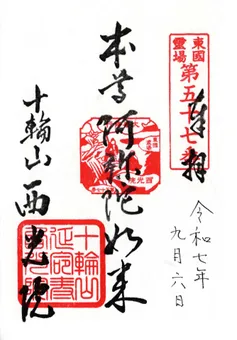 東國
靈場
第五十七番
奉拝
令和七年
九月六日
本尊阿弥陀如来
十輪山西光院
十輪山
延命寺
西光院